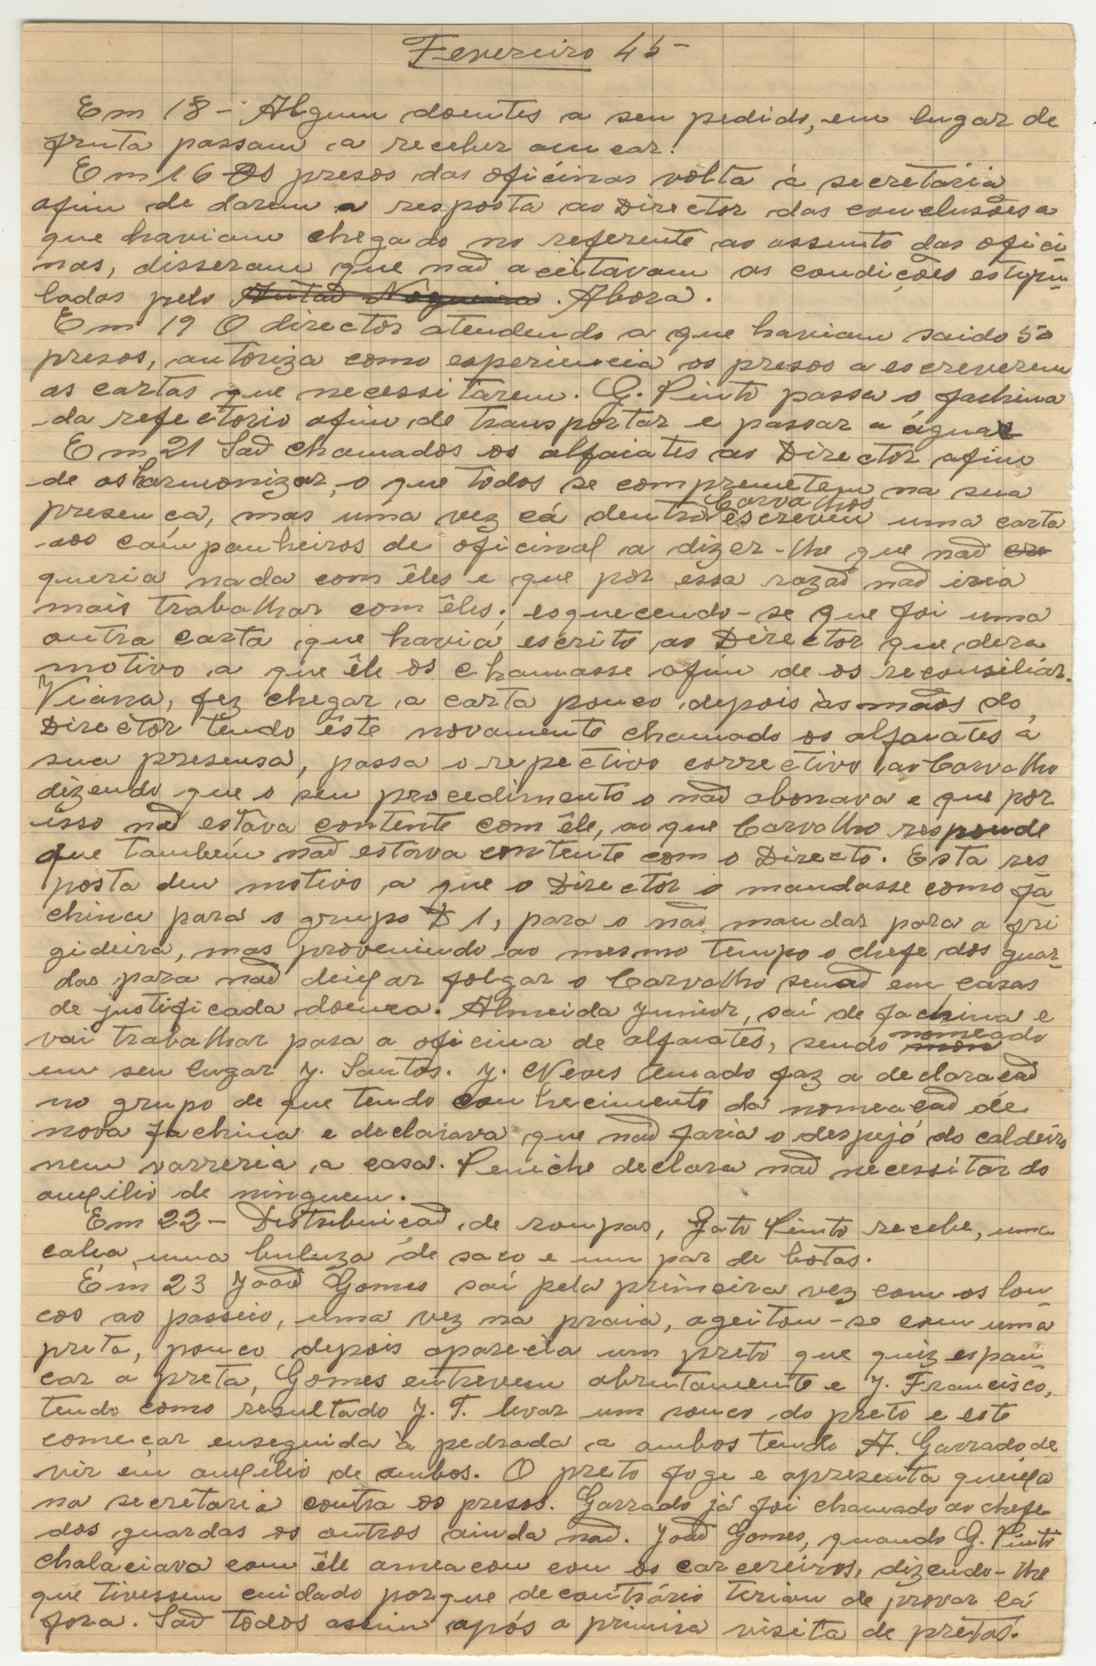 Fevereiro 45-
Em 18- Algum doentes a seu pedido, em lugar de
fruta passam a receber assucar.
Em 16 Os presos das oficinas volta a secretária
afim de darem a resposta ao Director das conclusões a
que haviam chegado no referente ao assunto das ofici
nas, disseram que naõ aceitavam as condições estipu-
ladas pelo . Abora.
Em 19 O director atendendo a que haviam saido 50
presos, autoriza como esperiencia os presos a escreverem
as cartas que necessitarem. G. Pinto passa o fachina
da refectorio afim de transportar e passar a água
Em 21 Saõ chamados os alfaiates ao Director afim
de os harmonizar, o que todos se comprometem na sua
presença, mas uma vez cá dentro Carvalhos escreveu uma carta
aos caímpanheiros de oficinal a dizer-lhe que naõ
queria nada com êles e que por essa razaõ naõ iria
mais trabalhar com êles; esquecendo-se que foi uma
outra carta que havia escrito ao Director que dera
motivo a que êle os chamasse afim de os reconsiliar.
Viana, fez chegar a carta pouco depois às mãos do
Director tendo êste novamente chamado os alfaiates à
sua presensa, passa o repectivo correctivo ao Carvalho
dizendo que o seu procedimento o naõ abonava e que por
isso naõ estava contente com êle, ao que Carvalho responde
que tambem naõ estava contente com o Directo. Esta res
posta deu motivo a que o Director o mandasse como fa
china para o grupo D 1, para o naõ mandar para a fri
gideira, mas provenindo ao mesmo tempo o chefe dos guar-
das para naõ deixar folgar o Carvalho senaõ em casos
de justificada doença. Almeida Junior, saí de fachina e
vai trabalhar para a oficina de alfaiates, sendo nomeado
em seu lugar J. Santos. J. Neves Amado faz a declaraçaõ
no grupo de que tendo conhecimento da nomeaçaõ de
nova fachina e declarava que naõ faria o despejo do caldeiro
nem varreria a casa. Peniche declara naõ necessitar do
auxilio de ninguem.
Em 22- Distribuiçaõ de roupas, Gato Pinto recebe, uma
calça, uma buluza de saco e um par de botas.
Em 23 Joaõ Gomes saí pela primeira vez com os lou-
cos ao passeio, uma vez na praia, ageitou-se com uma
preta, pouco depois aparecia um preto que quiz espan-
car a preta, Gomes entreveu abrutamente e J. Francisco,
tendo como resultado J. F. levar um souco do preto e este
começar enseguida à pedrada a ambos tendo A. Garrado de
vir em auxilio de ambos. O preto foge e apresenta queixa
na secretaria contra os presos. Garrado já foi chamado ao chefe
dos guardas os outros ainda naõ. Joaõ Gomes, quando G. Pinto
chalaciava com êle ameaçou com os carcereiros, dizendo-lhe
que tivessem cuidado porque de contrário teriam de provar lá
fora. Saõ todos assim após a primeira visita de pretas.